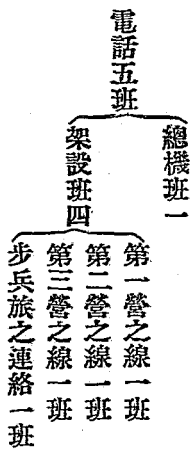 電話五班
總機班一
架設班四
第一營之線一班
第二營之線一班
第三營之線一班
步兵旅之連絡一班